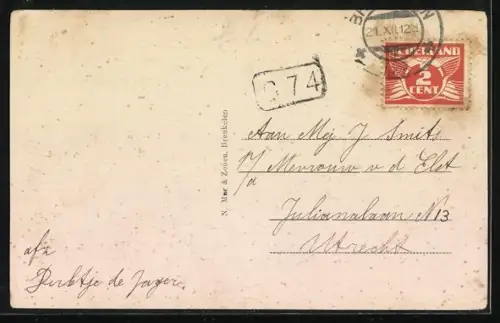 21.XII.12
NEDERLAND
2
CENT
G 74
N. Mur & Zonen, Breskelen
Aan Mej J Smits
p/a Mevrouw v d Elst
Julianalaan N 13
Utrecht
afz
Dirktje de Jager.